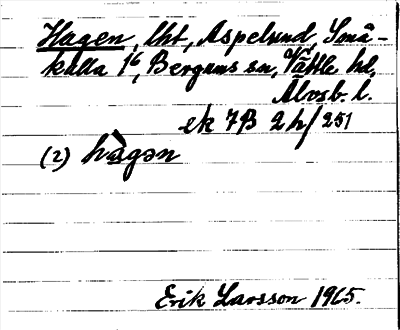 Hagen, lht, Aspelund, Små-
kulla 1⁶, Bergums sn, Vättle hd,
Älvsb. l.
ek 7B 2h/251
(2) hà̀gən
Erik Larsson 1965.